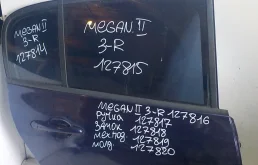 MEGAN II
3-R
127814
MEGAN II
3-R
127815
MEGAN II 3-R 127816
ручка 127817
замок 127818
мех под. 127819
молд. 127820